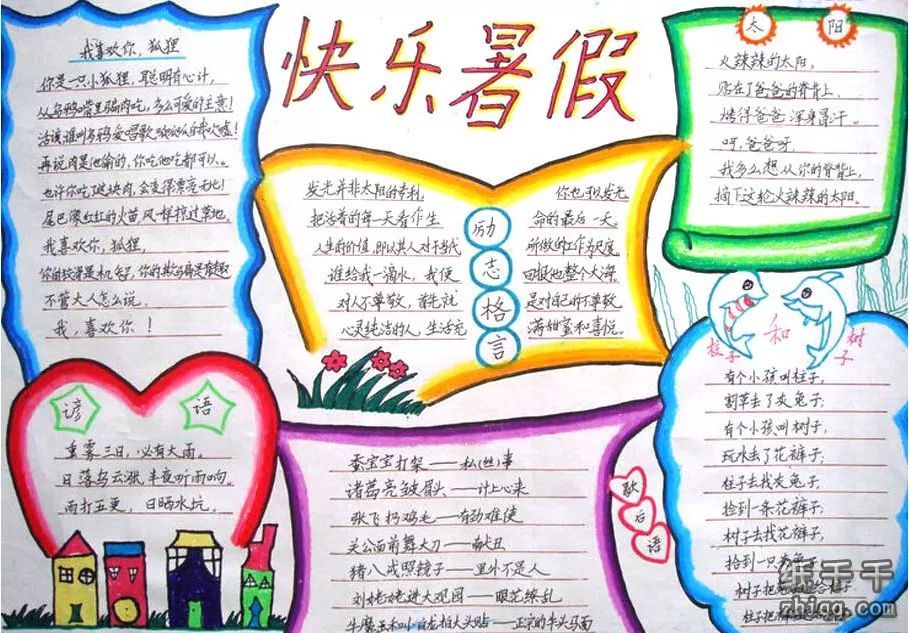 快乐暑假
我喜欢你,狐狸
你是一只小狐狸,聪明有心计,
从乌鸦嘴里骗肉吃,多么可爱的主意!
活该,谁叫乌鸦爱唱歌,
再说肉是他偷的,你吃他吃都可以。
也许你吃了这块肉,会变得漂亮无比!
尾巴像红红的火苗,风一样掠过草地。
我喜欢你,狐狸,
你的狡滑是机智,你的欺骗是有趣
不管大人怎么说,
我,喜欢你!
励志格言
发光并非太阳的专利, 你也可以发光
把活着的每一天看作生 命的最后一天。
人生的价值,即以其人对于当代 所做的工作为尺度
谁给我一滴水,我便 回报他整个大海
对人不尊敬,首先就 是对自己的不尊敬
心灵纯洁的人,生活充 满甜蜜和喜悦。
太阳
火辣辣的太阳,
贴在了爸爸的脊背上,
烤得爸爸浑身冒汗。
呀,爸爸呀,
我多么想从你的脊背上,
摘下这轮火辣辣的太阳。
谚语
重雾三日,必有大雨。
日落乌云涨,半夜听雨响。
雨打五更,日晒水坑。
歇后语
蚕宝宝打架——私(丝)事
诸葛亮皱眉头——计上心来
张飞扔鸡毛——有劲难使
关公面前舞大刀——献丑
猪八戒照镜子——里外不是人
刘姥姥进大观园——眼花缭乱
——正宗的牛头马面
柱子和树子
有个小孩叫柱子,
割草去了灰兔子;
有个小孩叫树子,
玩水去了花裤子;
柱子去找灰兔子,
捡到一条花裤子;
树子去找花裤子,
拾到一只灰兔子;
树子把
柱子把
纸千千
zhiqq.com